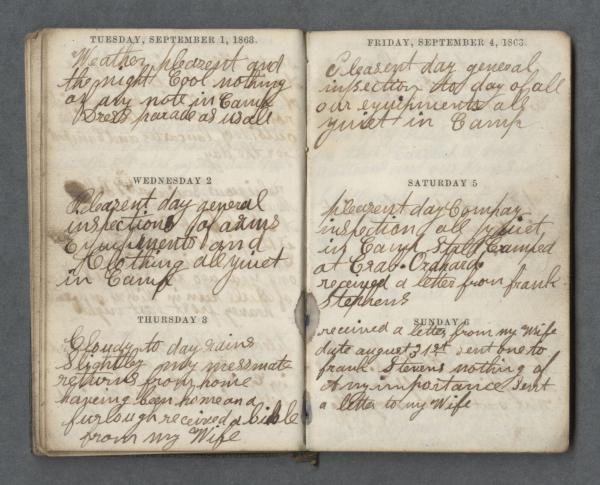 TUESDAY, SEPTEMBER 1, 1863.
Weather pleazent and
the night Cool nothing
of any note in Camp
Dress parade as usall
WEDNESDAY 2
Pleazent day general
inspections of arms
Equipments and
Clothing all quiet
in Camp
THURSDAY 3
Cloudy to day rains
Slightley my messmate
returns from home
haveing been home on a
furlough received a bible
from my Wife
FRIDAY, SEPTEMBER 4, 1863.
Pleasent day general
inspection to day of all
our equipments all
quiet in Camp
SATURDAY 5
pleazent day Compay
inspection all quiet
in Camp Still Camped
at Crab Orchard
received a letter from frank
Stephens
SUNDAY 6
received a letter from my Wife
date august 31st sent one to
frank Stevens nothing of
Any importance Sent
a letter to my Wife